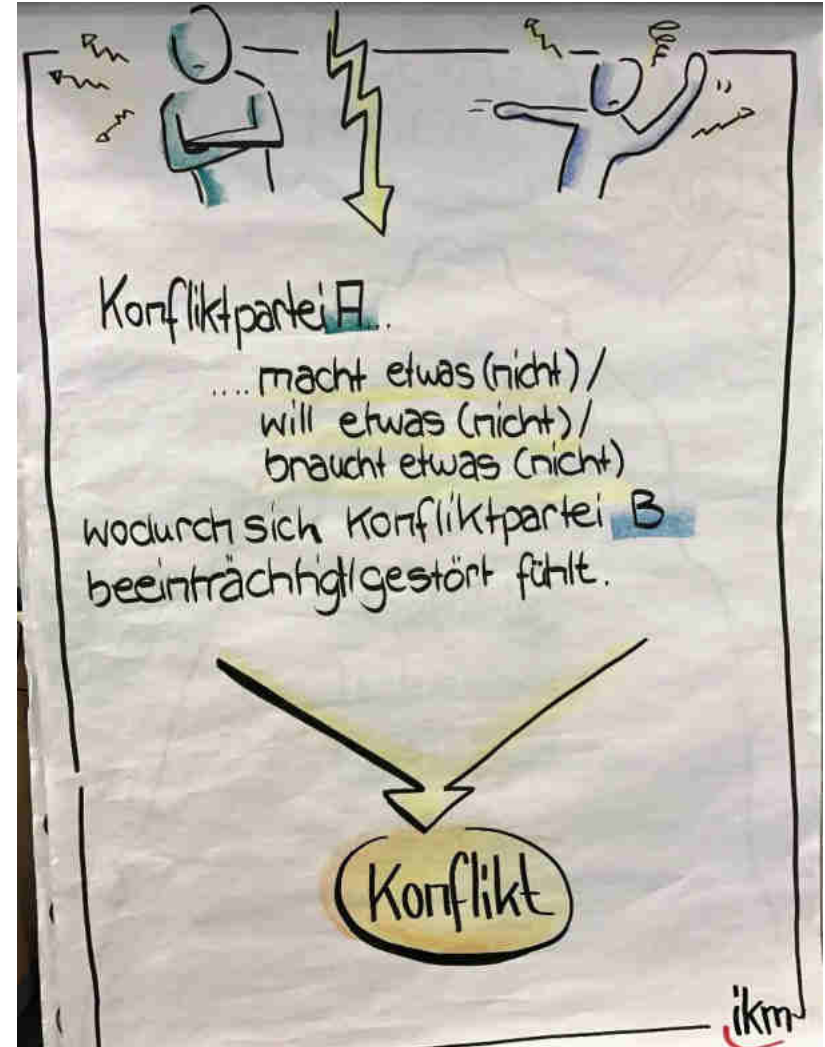 Konfliktpartei A...
.... macht etwas (nicht) /
will etwas (nicht) /
braucht etwas (nicht)
wodurch sich Konfliktpartei B
beeinträchtigt/gestört fühlt.
Konflikt
ikm